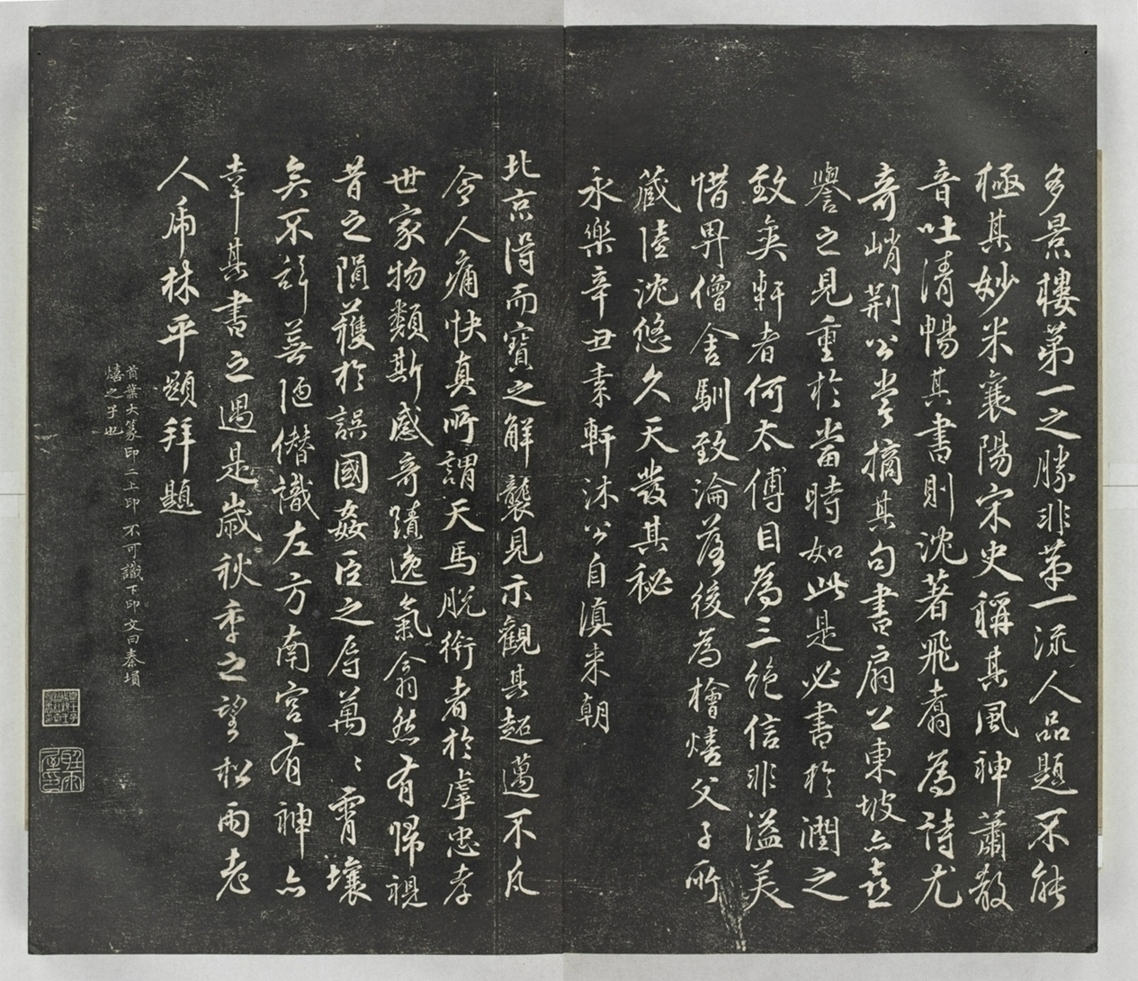 多景樓第一之勝非第一流人品題不能
極其妙米襄陽宋史稱其風神蕭散
音吐清暢其書則沈著飛翥為詩尤
奇峭荊公嘗摘其句書扇上東坡亦喜
譽之見重於當時如此是必書於潤之
致爽軒者何太傅目為三絕信非溢美
惜畀僧舍馴致淪落後為檜熺父子所
藏陸沈悠久天發其秘
永樂辛丑素軒沐公自滇來朝
北京得而寶之解襲見示觀其超邁不凡
令人痛快真所謂天馬脫銜者於虖忠孝
世家物類斯感奇蹟逸氣翕然有歸視
昔之隕穫於誤國姦臣之辱萬〻霄壤
矣不辭蕪陋僭識左方南宮有神亦
幸其書之遇是歲秋季之望松雨老
人席林平顯拜題
首葉大篆印二上印不可識下印文曰秦塤
熺之子也